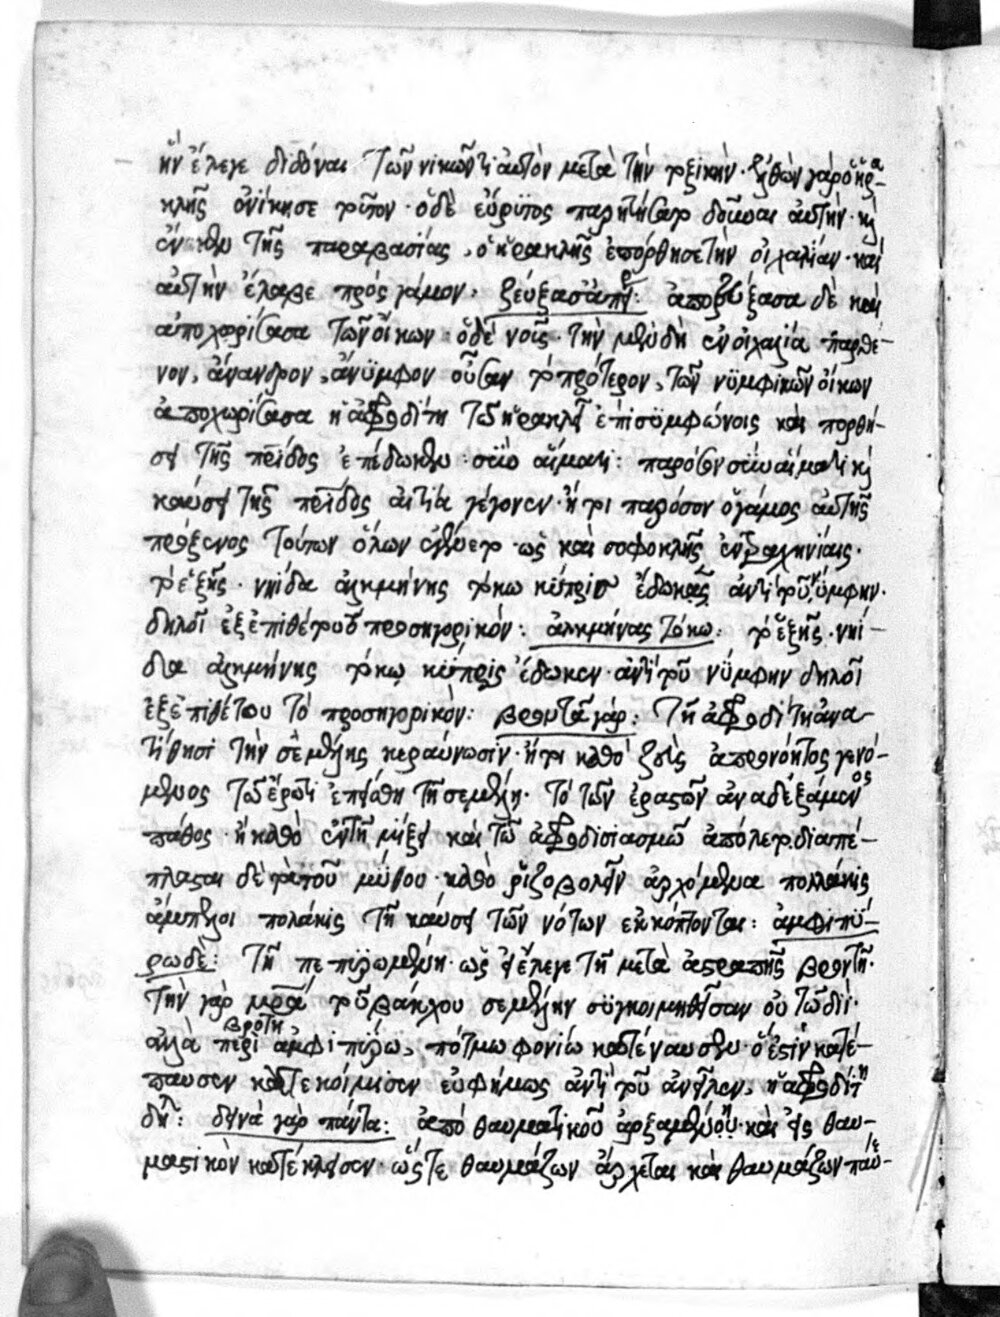 ἣν ἔλεγε διδόναι τῶν νικῶντι αὐτὸν μετὰ τὴν τοξικήν. ἐλθὼν γὰρ ὁ ἡρα-
κλῆς ἐνίκησε τοῦτον. ὁ δὲ εὔρυτος παρῃτήσατο δοῦναι αὐτήν. κ
τῆς παραβασίας, ὁ ἡρακλῆς ἐπόρθησε τὴν οἰχαλίαν. καὶ
αὐτὴν ἔλαβε πρὸς γάμον. ζεύξασ' ἀπ': ἀποζεύξασα δὲ καὶ
ἀποχωρίσασα τῶν οἴκων. ὁ δὲ νοῦς. τὴν μὲν δὴ ἐν οἰχαλία παρθέ-
νον, ἄνανδρον, ἀνύμφον οὖσαν τὸ πρότερον, τῶν νυμφικῶν οἴκων
ἀποχωρίσασα ἡ ἀφροδίτη τῶ ἡρακλῆ ἐπὶ συμφώνοις καὶ πορθή-
σει τῆς πρίδος ἐπέδωκεν. σὺν αἵματι: παρόσον σὺν αἵματι κ
καύσει τῆς πρίδος αἰτία γέγονεν. ἤτοι παρόσον ὁ γάμος αὐτῆς
πρόξενος τούτων ὅλων ἐγένετο. ὡς καὶ σοφοκλῆς ἐν τραχινίαις.
τὸ ἑξῆς. νηίδα ἀλκμήνης τόκω κύπρις ἔδωκας ἀντὶ τοῦ νύμφην.
δηλοῖ ἐξ ἐπιθέτου προσηγορικόν: ἀλκμήνας τόκω: τὸ ἑξῆς. νηί-
δα ἀλκμήνης τόκω κύπρις ἔδωκεν. ἀντὶ τοῦ νύμφην δηλοῖ
ἐξ ἐπιθέτου τὸ προσηγορικόν: βροντᾶ γάρ: τῆ ἀφροδίτη ἀνα-
τίθησι τὴν σεμέλης κεραύνωσιν. ἤτοι καθὸ ζεὺς ἀπρονόητος γενό-
μενος τῶ ἔρωτι ἐπείσθη τῆ σεμέλη. τὸ τῶν ἐραστῶν ἀναδεξάμενος
πάθος. ἢ καθὸ ἐν τῆ μίξει καὶ τῶ ἀφροδισιασμῶ ἀπόλετο. διαπέ-
πλασται δὲ τοῦ μύθου. καθὸ ῥιζοβολεῖν ἀρχόμενα πολλάκις
ἄμπελοι πολάκις τῆ καύσει τῶν νότων ἐκκόπτονται: ἀμφιπύ-
ρω δέ: τῆ πεπυρωμένη. ὡς εἰ ἔλεγε τῆ μετὰ ἀστραπῆς βροντῆ.
τὴν γὰρ μρα τοῦ βάκχου σεμέλην συγκοιμηθεῖσαν οὐ τῶ διί.
ἀλλὰ περὶ βροτῆ ἀμφιπύρω, πότμω φονίω κατέναυσεν. ὅ ἐστιν κατέ-
παυσεν κατεκοίμισεν εὐφήμως ἀντὶ τοῦ ἀνεῖλεν, ἡ ἀφροδίτη
δη: δεινὰ γὰρ πάντα: ἀπὸ θαυμαστικοῦ ἀρξαμένου. καὶ εἰς θαυ-
μαστικὸν κατέκλεισεν. ὥστε θαυμάζων ἄρχεται καὶ θαυμάζων παύ-